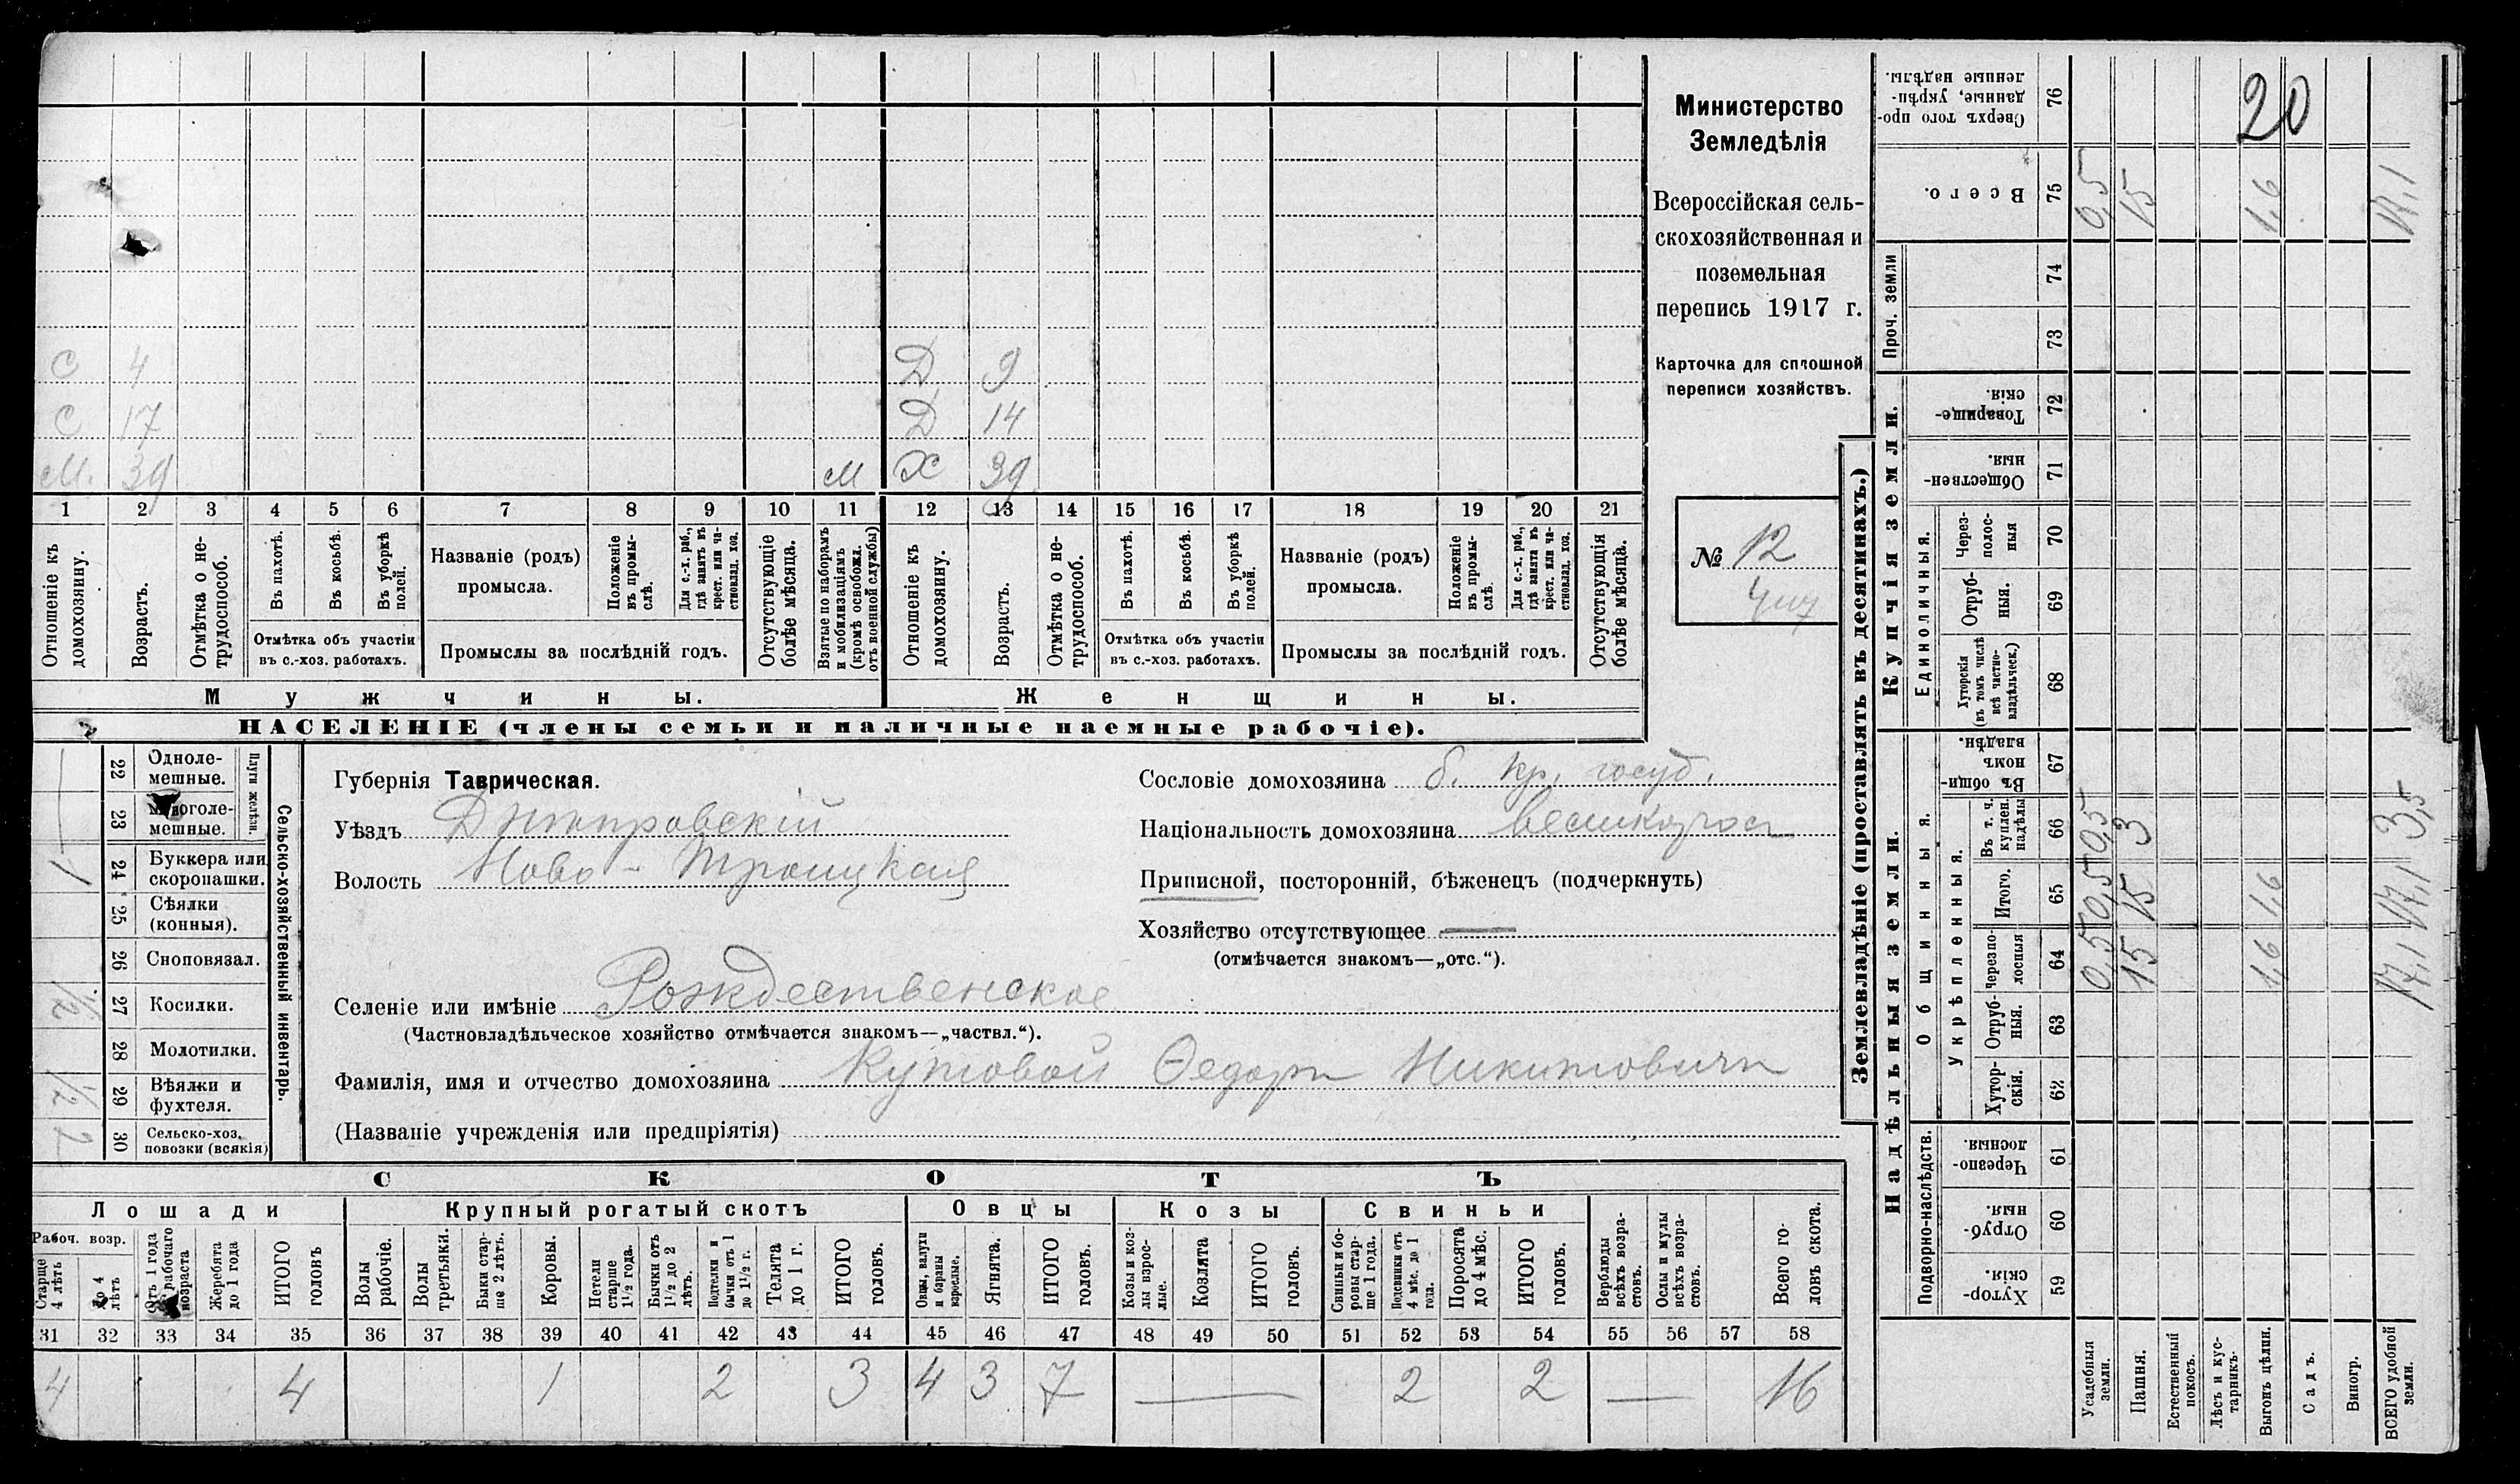 С 4 Д 9
С 17 Д 14
М. 39 м Х 39
1 2 3 4 5 6 7 8 9 10 11 12 13 14 15 16 17 18 19 20 21
Отношеніе къ домохозяину.
Возрастъ.
Отмѣтка о нетрудоспособ.
Въ пахотѣ.
Въ косьбѣ.
Въ уборкѣ полей.
Отмѣтка объ участіи
въ с.-хоз. работахъ.
Названіе (родъ)
промысла.
Положеніе въ промыслѣ.
Для с.-х. раб., гдѣ занятъ въ крест. или частновлад. хоз.
Промыслы за послѣдній годъ.
Отсутствующіе болѣе мѣсяца.
Взятые по наборамъ и мобилизаціямъ (кромѣ освобожд. отъ военной службы)
Отношеніе къ домохозяину.
Возрастъ.
Отмѣтка о нетрудоспособ.
Въ пахотѣ.
Въ косьбѣ.
Въ уборкѣ полей.
Отмѣтка объ участіи
въ с.-хоз. работахъ.
Названіе (родъ)
промысла.
Положеніе въ промыслѣ.
Для с.-х. раб., гдѣ занятъ въ крест. или частновлад. хоз.
Промыслы за послѣдній годъ.
Отсутствующія болѣе мѣсяца.
Мужчины. Женщины.
НАСЕЛЕНІЕ (члены семьи и наличные наемные рабочіе).
Министерство
Земледѣлія
Всероссійская сель-
скохозяйственная и
поземельная
перепись 1917 г.
Карточка для сплошной
переписи хозяйствъ.
№ 12
Сельско-хозяйственный инвентарь.
Плуги желѣзн.
22 Одноле-
мешные.
23 Многоле-
мешные.
1 24 Буккера или
скоропашки.
25 Сѣялки
(конныя).
26 Сноповязал.
1/2 27 Косилки.
28 Молотилки.
1/2 29 Вѣялки и
фухтеля.
2 30 Сельско-хоз.
повозки (всякія)
Губернія Таврическая.
Уѣздъ Днѣпровскій
Волость Ново-Троицкая
Сословіе домохозяина б. кр. госуд.
Національность домохозяина великорос
Приписной, посторонній, бѣженецъ (подчеркнуть)
Хозяйство отсутствующее —
(отмѣчается знакомъ—„отс.“).
Селеніе или имѣніе Рождественское
(Частновладѣльческое хозяйство отмѣчается знакомъ—„частвл.“).
Фамилія, имя и отчество домохозяина Кутовой Ѳедоръ Никитовичъ
(Названіе учрежденія или предпріятія)
СКОТЪ
Лошади Крупный рогатый скотъ Овцы Козы Свиньи
Рабоч. возр.
Старше 4 лѣтъ
До 4 лѣтъ
Отъ 1 года до рабочаго возраста
Жеребята до 1 года
ИТОГО головъ
Волы рабочіе.
Волы третьяки.
Быки старше 2 лѣтъ.
Коровы.
Нетели старше 1½ года.
Бычки отъ 1½ до 2 лѣтъ.
Подтелки и бычки отъ 1 до 1½ г.
Телята до 1 г.
ИТОГО головъ.
Овцы, валухи и бараны взрослые.
Ягнята.
ИТОГО головъ.
Козы и козлы взрослые.
Козлята
ИТОГО головъ.
Свиньи и боровы старше 1 года.
Подсвинки отъ 4 мѣс. до 1 года.
Поросята до 4 мѣс.
ИТОГО головъ.
Верблюды всѣхъ возрастовъ.
Ослы и мулы всѣхъ возрастовъ.
Всего головъ скота.
31 32 33 34 35 36 37 38 39 40 41 42 43 44 45 46 47 48 49 50 51 52 53 54 55 56 57 58
4 4 1 2 3 4 3 7 — 2 2 — 16
Землевладѣніе (проставлять въ десятинахъ.)
Сверхъ того проданные, укрѣпленные надѣлы. 76 20
Всего. 75 0,5 15 1,6 17,1
Проч. земли 74 73
Купчія земли.
Товарищескія. 72
Общественныя. 71
Единоличныя.
Черезполосныя 70
Отрубныя. 69
Хуторскія (въ томъ числѣ всѣ частновладѣльческ.) 68
Надѣльныя земли.
Общинныя.
Въ общинномъ владѣн. 67
Укрѣпленныя.
Въ т. ч. куплен. надѣлы 66 0,5 3 3,5
Итого. 65 0,5 15 1,6 17,1
Черезполосныя 64 0,5 15 1,6 17,1
Отрубныя. 63
Хуторскія. 62
Подворно-наслѣдств.
Черезполосныя. 61
Отрубныя. 60
Хуторскія. 59
Усадебныя земли.
Пашня.
Естественный покосъ.
Лѣсъ и кустарникъ.
Выгонъ цѣлин.
Садъ.
Виногр.
ВСЕГО удобной земли.